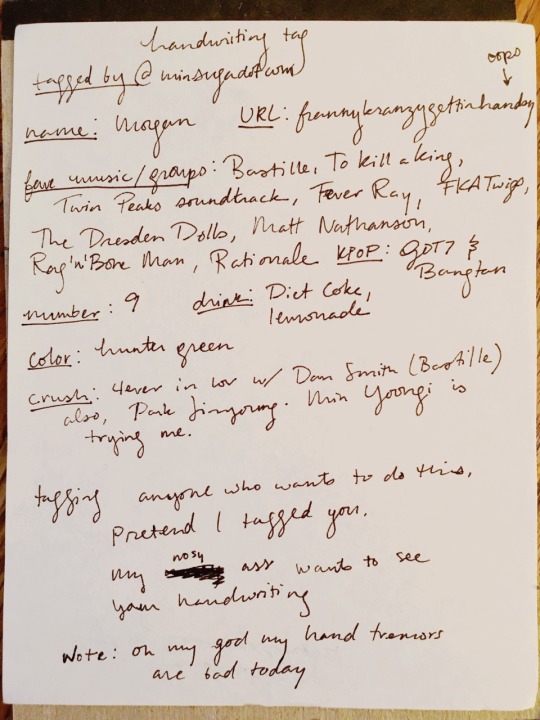 handwriting tag
tagged by @minsugadotcom
oops
name: Morgan URL: frannykranzygettinhandsy
fave music/groups: Bastille, To kill a king,
Twin Peaks soundtrack, Fever Ray, FKA Twigs,
The Dresden Dolls, Matt Nathanson,
Rag'n'Bone Man, Rationale KPOP: GOT7 &
Bangtan
number: 9 drink: Diet Coke,
lemonade
color: hunter green
crush: 4ever in luv w/ Dan Smith (Bastille)
also, Park Jinyoung. Min Yoongi is
trying me.
tagging anyone who wants to do this,
Pretend I tagged you.
my nosy ass wants to see
your handwriting
Note: oh my god my hand tremors
are bad today